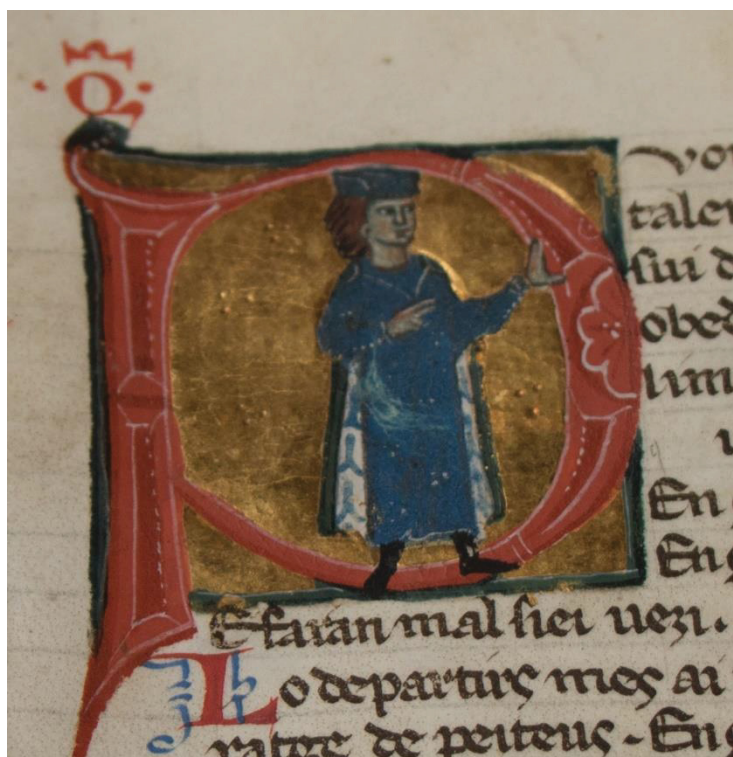 P
talen
sui d
obed
lim
En
En
E faran mal siei uezi.
Lo departirs mes ai
ratge de peiteus . En